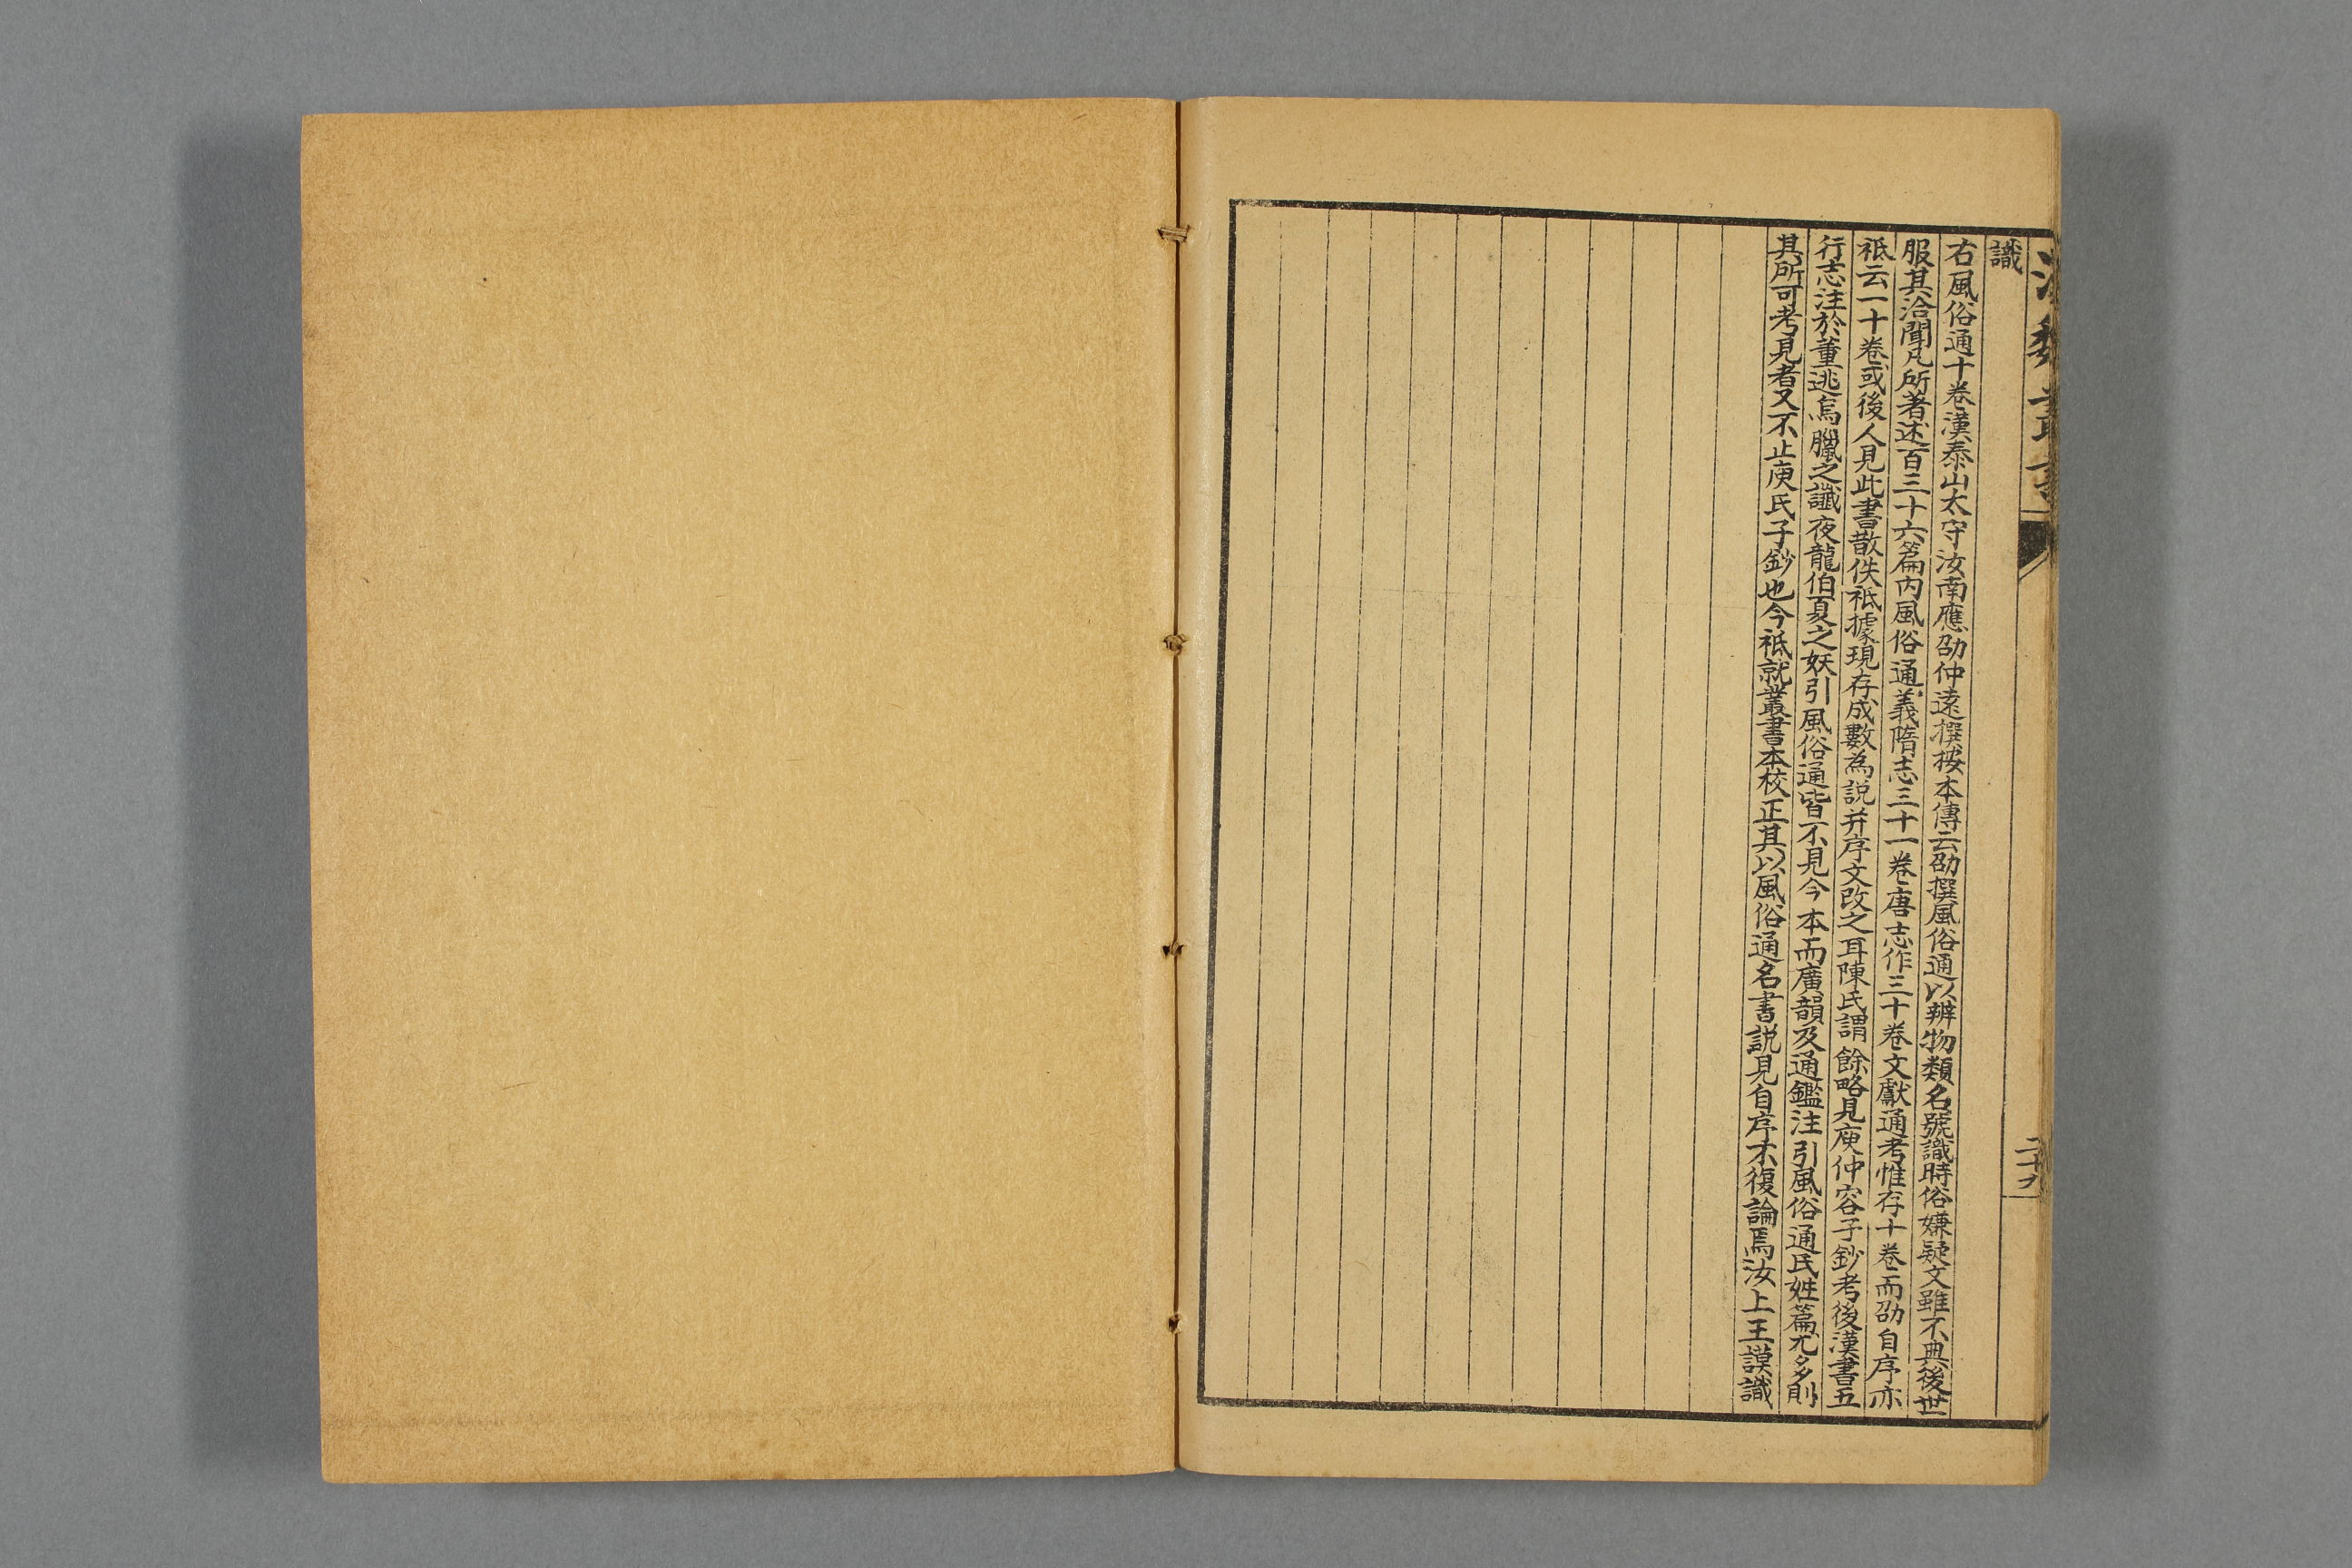 識
右風俗通十卷漢泰山太守汝南應劭仲遠撰按本傳云劭撰風俗通以辨物類名號識時俗嫌疑文雖不典後世
服其洽聞凡所著述百三十六篇內風俗通義隋志三十一卷唐志作三十卷文獻通考惟存十卷而劭自序亦
祗云一十卷或後人見此書散佚祗據現存成數為說并序文改之耳陳氏謂餘略見庾仲容子鈔考後漢書五
行志注於董逃烏臘之讖夜龍伯夏之妖引風俗通皆不見今本而廣韻及通鑑注引風俗通氏姓篇尤多則
其所可考見者又不止庾氏子鈔也今祗就叢書本校正其以風俗通名書說見自序不復論焉汝上王謨識